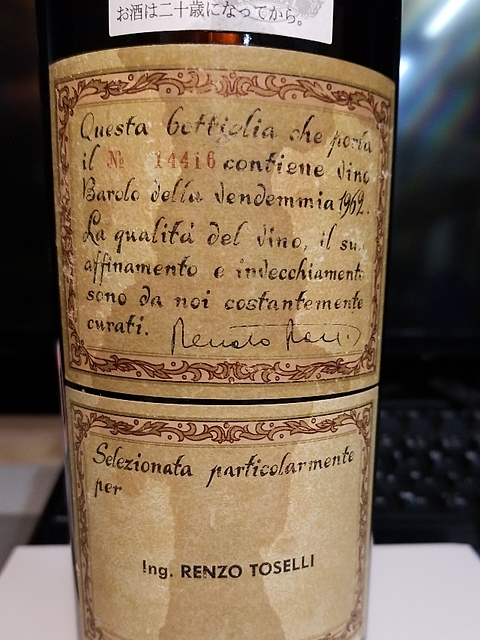 お酒は二十歳になってから。
Questa bottiglia che porta
il № 14416 contiene vino
Barolo della vendemmia 1962.
La qualitá del vino, il su
affinamento e invecchiament
sono da noi costantemente
curati. Renato
Selezionata particolarmente
per
Ing. RENZO TOSELLI